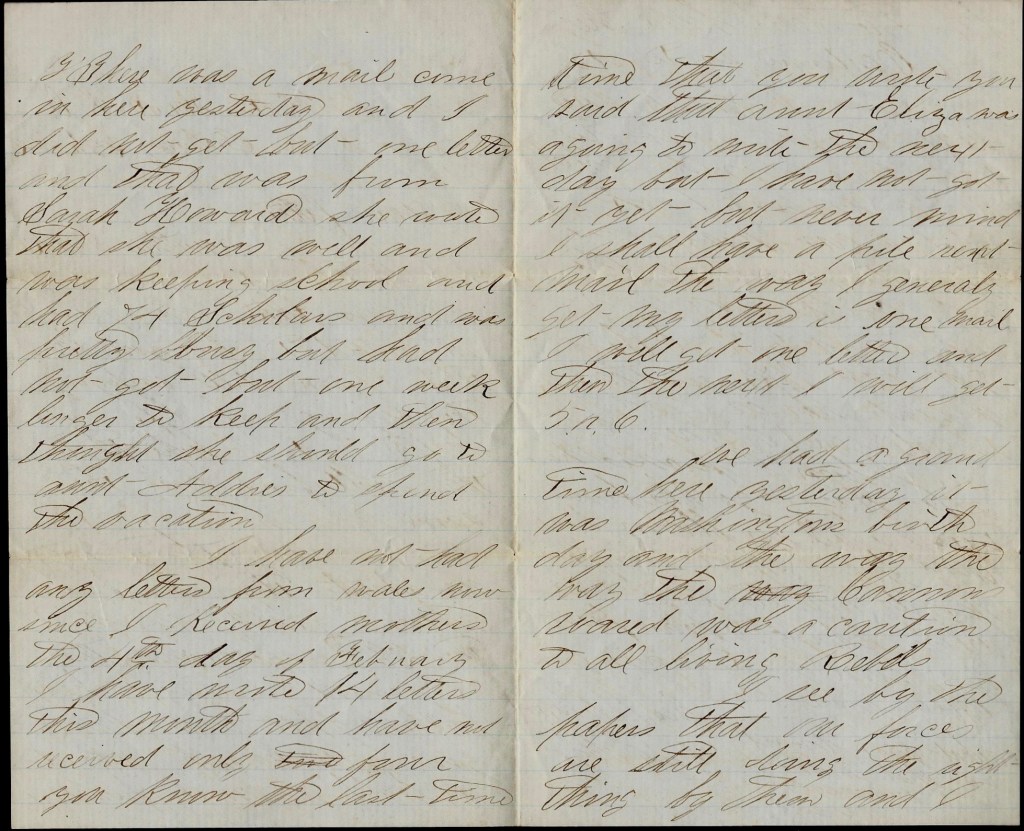 There was a mail come
in here yesterday and I
did not get but one letter
and that was from
Sarah Howard she wrote
that she was well and
was keeping school and
had 74 Scholars and was
pretty busy but had
not got but one week
longer to keep and then
thought she should go to
aunt Addies to spend
the vacation
I have not had
any letters from wales now
since I Received mothers
the 4th day of February
I have wrote 14 letters
this month and have not
received only four
you know the last time
time that you wrote you
said that aunt Eliza was
agoing to write the next
day but I have not got
it yet but never mind
I shall have a pile next
mail the way I generaly
get my letters is one mail
I will get one letter and
then the next I will get
5 or 6.
we had a grand
time here yesterday it
was Washingtons birth
day and the way the
way the Cannons
roared was a caution
to all living Rebels
I see by the
papers that our forces
are still doing the right
thing by them and I